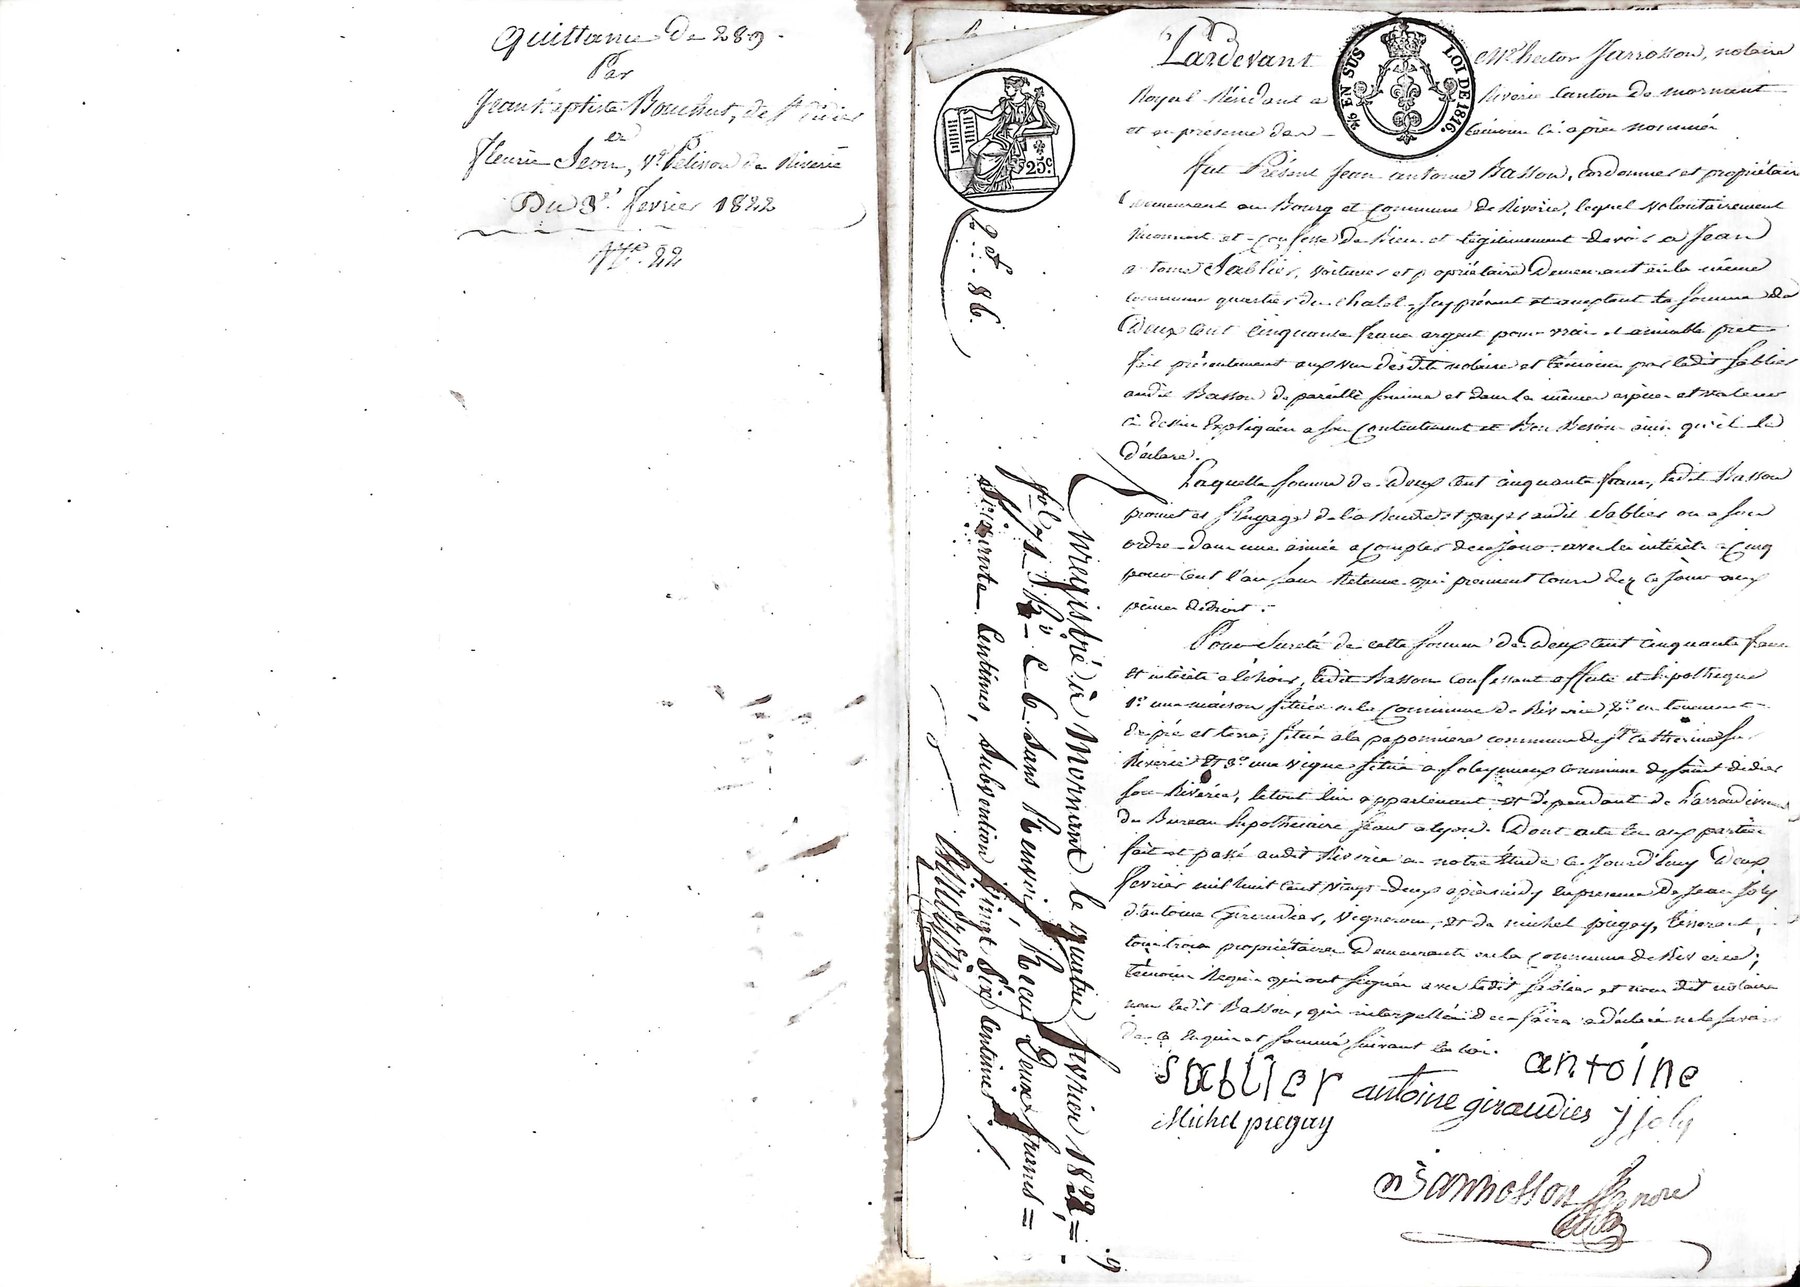 Quittance de 289.
Par
Jean Baptiste Bouchut, de St didier
et
Fleurie Jeon, Ve Pelisson de Riverie
Du 3e. fevrier 1822
No. 22
EN SUS
LOI DE 1816.
25c
2 et. 86.
Pardevant Me hector Jarrosson, notaire
Royal Résidant a Riverie Canton de mornant
et en présence des témoins ci après nommés
fut Présent Jean antoine Basson, Cordonnier et propriétaire
demeurant au Bourg et Commune de Riverie, lequel volontairement
Reconnait et Confesse de bien et légitimement devoir a Jean
antoine Sablier, voiturier et propriétaire Demeurant en la même
commune quartier du Chatel, icy présent et acceptant la somme de
Deux Cent Cinquante francs argent pour vrai et amiable pret
fait présentement aux vus desdits notaire et témoins par ledit Sablier
audit Basson de pareille somme et dans les mêmes espèces et valeurs
ci dessus Expliquées a son Contentement et Bon Besoin ainsi qu'il le
déclare.
Laquelle somme de Deux Cent cinquante francs, ledit Basson
promet et s'engage de la Rendre et payer audit Sablier ou a son
ordre dans une année a compter de ce jour avec les intérêts a Cinq
pour Cent l'an sans Retenue qui prennent Cours dez ce jour aux
peines de droit.
Pour Sureté de cette somme de Deux Cent Cinquante francs
et intérêts a échoir, ledit Basson confessant affecte et hipothèque
1o une maison située en la Commune de Riverie, 2o un tenement
de pré et terre, situé a la paponniere commune de Ste Catherine sur
Riverie Et 3o une vigne située a foleymieux Commune de Saint didier
sous Riverie, le tout lui appartenant et dépendant de l'arrondissement
du Bureau hipothécaire séant a lyon. Dont acte lu aux parties
fait et passé audit Riverie en notre Etude Ce Jourd'huy Deux
fevrier mil huit cent vingt-deux après midy En presence De Jean Joly
d'antoine Giraudier, vigneron, et de michel piegay, tisserant,
tous trois propriétaires Demeurants en la Commune de Riverie,
témoins Requis qui ont signés avec ledit Sablier et nous dit notaire
non ledit Basson, qui interpellé de ce faire a déclaré ne le savoir
de ce Requis et sommé suivant la loi.
sablier antoine
Michel piegay antoine giraudier J joly
Jarrosson nore
Enregistré à Mornant le quatre fevrier 1822,
fol. 71 Ro C 6 sans Renvoi, Recu Deux francs
Soixante Centimes, subvention vingt Six Centimes